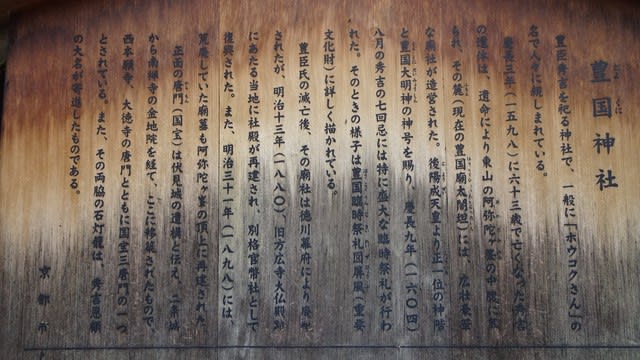 豊国神社
豊臣秀吉を祀る神社で、一般に「ホウコクさん」の
名で人々に親しまれている。
慶長三年（一五九八）に六十三歳で亡くなった秀吉
の遺体は、遺命により東山の阿弥陀ヶ峯の中腹に葬
られ、その麓（現在の豊国廟太閤坦）には、広壮豪華
な廟社が造営された。後陽成天皇より正一位の神階
と豊国大明神の神号を賜り、慶長九年（一六〇四）
八月の秀吉の七回忌には特に盛大な臨時祭礼が行わ
れた。そのときの様子は豊国臨時祭礼図屏風（重要
文化財）に詳しく描かれている。
豊臣氏の滅亡後、その廟社は徳川幕府により廃祀
されたが、明治十三年（一八八〇）、旧方広寺大仏殿跡
にあたる当地に社殿が再建され、別格官幣社として
復興された。また、明治三十一年（一八九八）には、
荒廃していた廟墓も阿弥陀ヶ峯の頂上に再建された。
正面の唐門（国宝）は伏見城の遺構と伝え、二条城
から南禅寺の金地院を経て、ここに移築されたもので、
西本願寺、大徳寺の唐門とともに国宝三唐門の一つ
とされている。また、その両脇の石灯籠は、秀吉恩顧
の大名が寄進したものである。
京都市